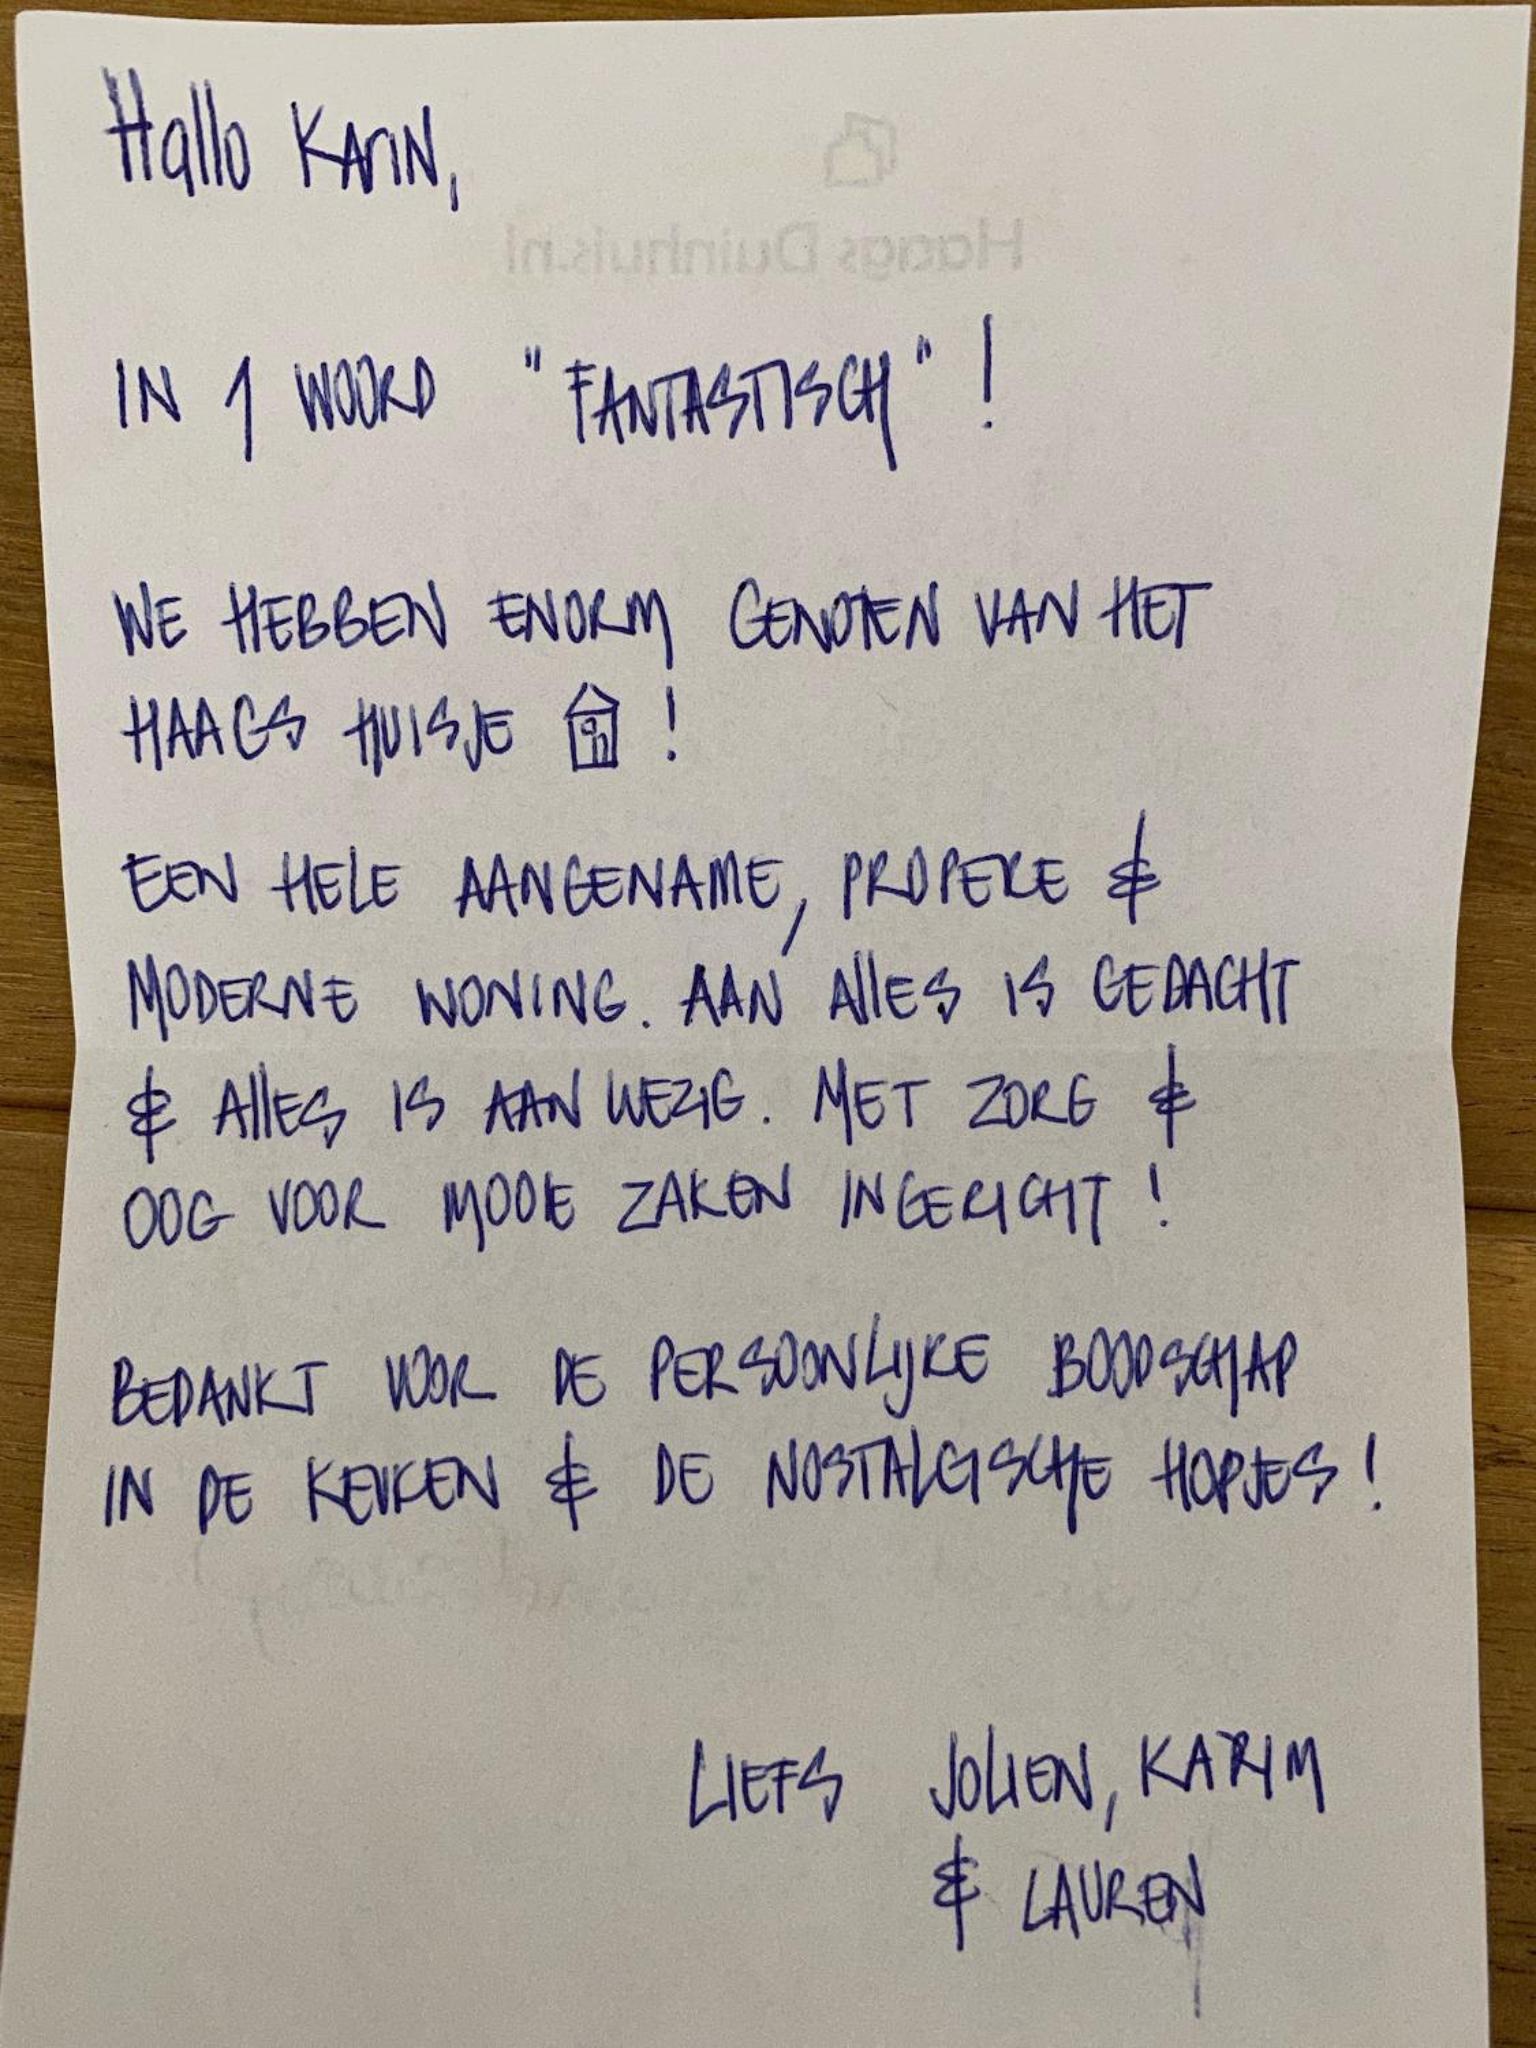 Hallo Karin,
Haags Duinhuis.nl
IN 1 WOORD "FANTASTISCH"!
WE HEBBEN ENORM GENOTEN VAN HET
HAAGS HUISJE !
EEN HELE AANGENAME, PROPERE &
MODERNE WONING. AAN ALLES IS GEDACHT
& ALLES IS AANWEZIG. MET ZORG &
OOG VOOR MOOIE ZAKEN INGERICHT!
BEDANKT VOOR DE PERSOONLIJKE BOODSCHAP
IN DE KEUKEN & DE NOSTALGISCHE HOPJES!
LIEFS JOLIEN, KARIM
& LAUREN